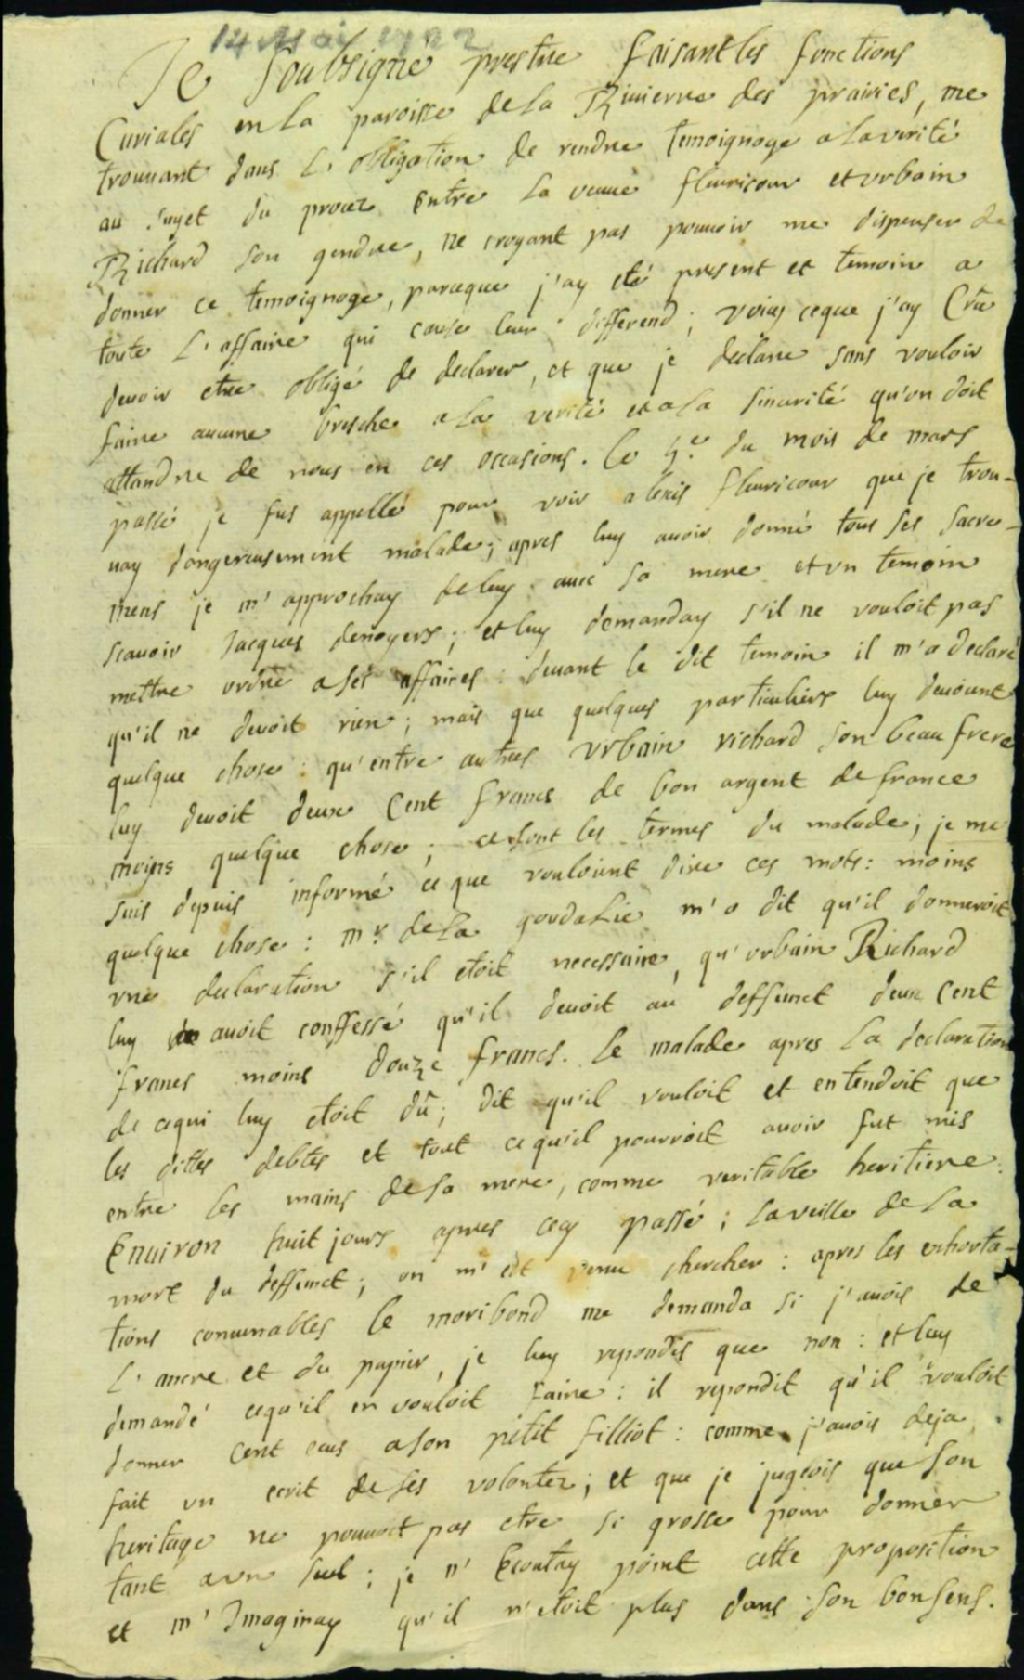 14 Mai 1722
Je soubsigné prestre faisant les fonctions
Curiales en la paroisse de la Riuierre des prairies, me
trouuant dans l'obligation de rendre temoignage a la verité
au sujet du procez entre la veuue fleuricour et urbain
Richard son gendre, ne croyant pas pouuoir me dispenser de
donner ce temoignage, parceque j'ay eté present et temoin a
toute l'affaire qui cause leur differend; voicy ceque j'ay Crû
deuoir etre obligé de declarer, et que je declare sans vouloir
faire aucune bresche a la verité et a la sincerité qu'on doit
attandre de nous en ces occasions. le 4.e du mois de mars
passé je fus appellé pour voir alexis fleuricour que je trou-
uay dangereusement malade; apres luy auoir donné tous ses sacre-
mens je m'approchay de luy auec sa mere et un temoin
scauoir Jacques denoyers; et luy demanday s'il ne vouloit pas
mettre ordre a ses affaires: deuant le dit temoin il m'a declaré
qu'il ne deuoit rien; mais que quelques particuliers luy deuoient
quelque chose: qu'entre autres urbain richard son beau frere
luy deuoit deux Cent francs de bon argent de france
moins quelque chose; ce sont les termes du malade; je me
suis depuis informé ce que vouloient dire ces mots: moins
quelque chose: mr de la gordalie m'a dit qu'il donneroit
une declaration s'il etoit necessaire, qu'urbain Richard
luy auoit conffessé qu'il deuoit au deffunct deux Cent
francs moins douze francs. le malade apres la declaration
de cequi luy etoit dû; dit qu'il vouloit et entendoit que
les dittes debtes et tout ce qu'il pourroit auoir fut mis
entre les mains de sa mere, comme veritable heritiere:
Enuiron huit jours apres cecy passé; la veille de la
mort du deffunct; on m'est venu chercher: apres les exhorta-
tions conuenables le moribond me demanda si j'auois de
l'ancre et du papier, je luy repondis que non: et luy
demandé cequ'il en vouloit faire: il repondit qu'il vouloit
donner Cent ecus a son petit filliot: comme j'auois deja
fait un ecrit de ses volontez; et que je jugeois que son
heritage ne pouuoit pas etre si grosse pour donner
tant a un seul; je n'Ecoutay point cette proposition
et m'Imaginay qu'il n'etoit plus dans son bon sens.